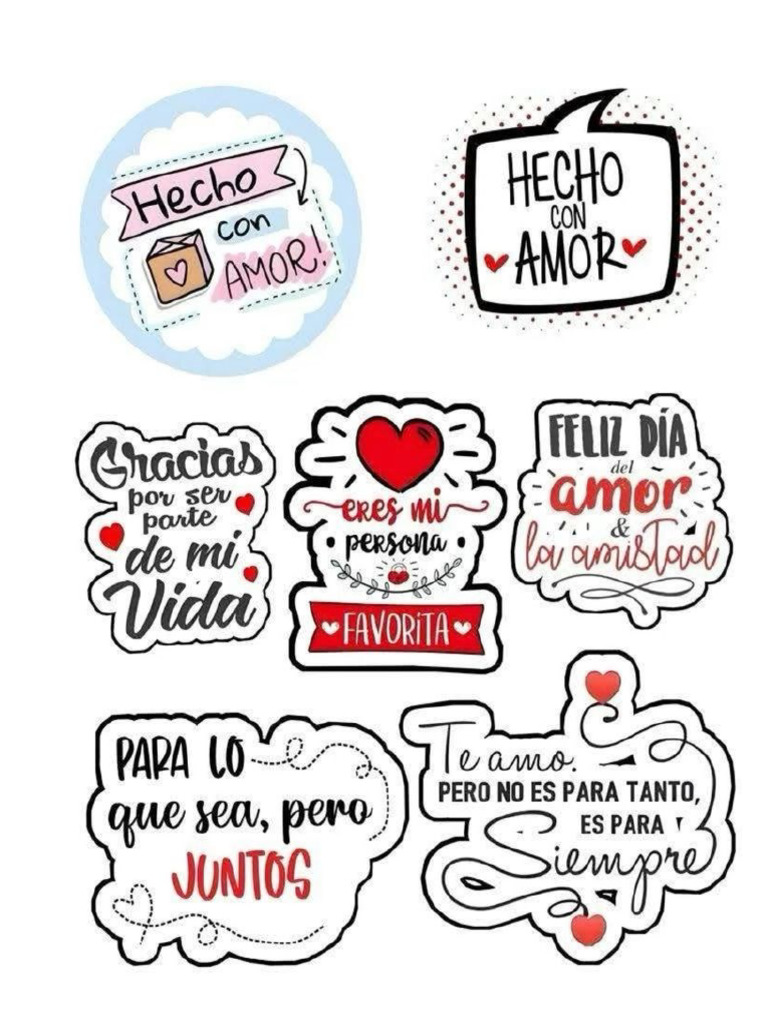 Hecho
con
AMOR!
HECHO
CON
AMOR
Gracias
por ser
parte
de mi
Vida
eres mi
persona
FAVORITA
FELIZ DÍA
del
amor
&
la amistad
PARA LO
que sea, pero
JUNTOS
Te amo.
PERO NO ES PARA TANTO,
ES PARA
Siempre